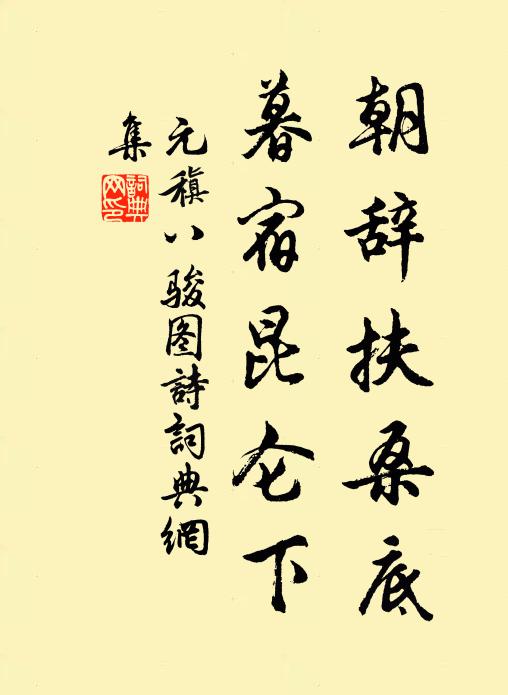 朝辞扶桑底
暮宿昆仑下
元稹八骏图詩詞典網
集
詞典网印